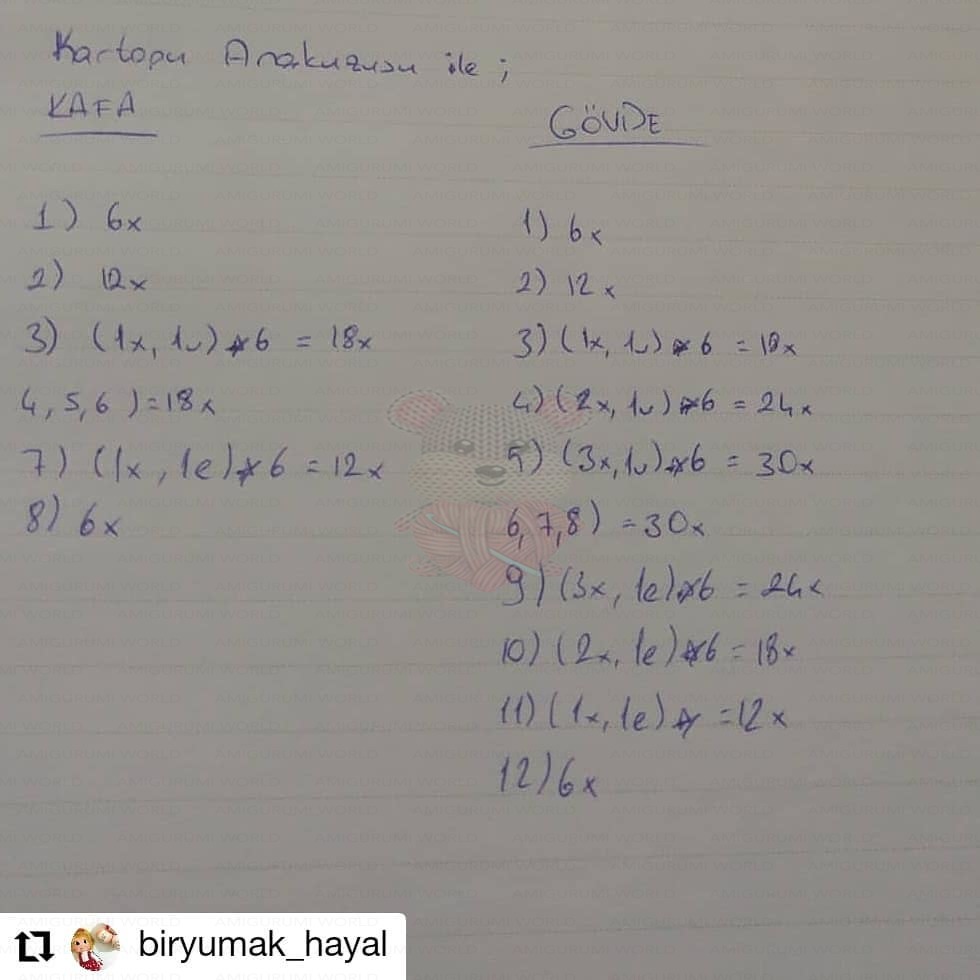 Kartopu Anakuzusu ile ;
KAFA
1) 6x
2) 12x
3) (1x, 1v) * 6 = 18x
4, 5, 6 ) = 18x
7) (1x, 1e) * 6 = 12x
8) 6x
GÖVDE
1) 6x
2) 12x
3) (1x, 1v) * 6 = 18x
4) (2x, 1v) * 6 = 24x
5) (3x, 1v) * 6 = 30x
6, 7, 8 ) = 30x
9) (3x, 1e) * 6 = 24x
10) (2x, 1e) * 6 = 18x
11) (1x, 1e) * = 12x
12) 6x
biryumak_hayal